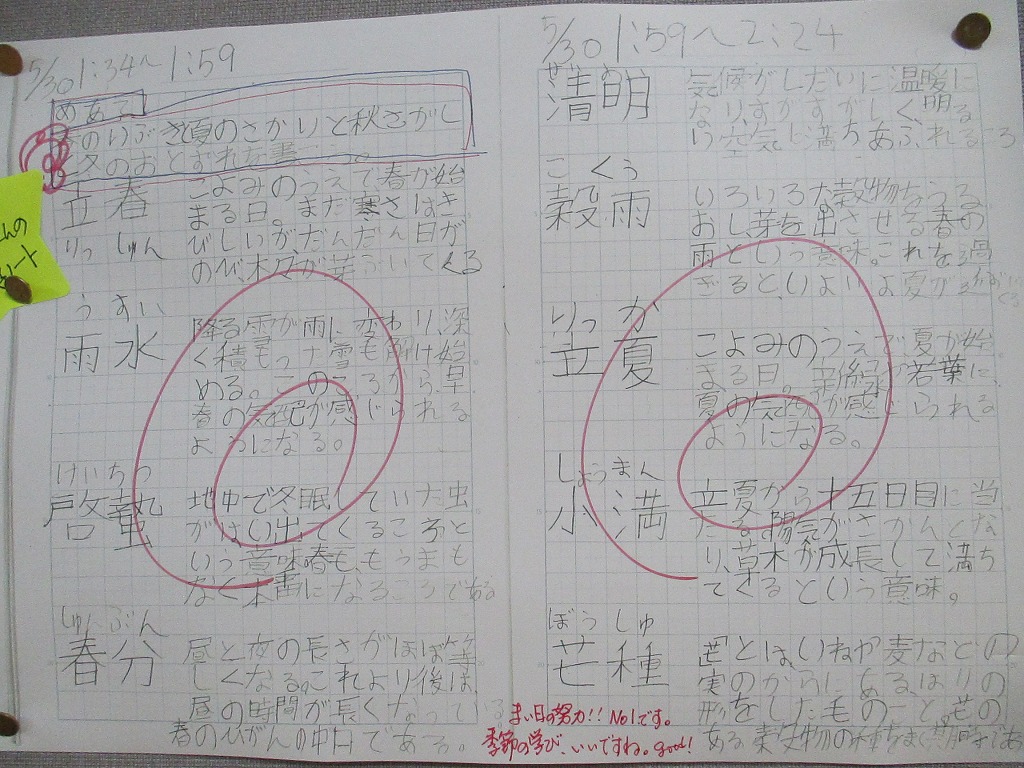 5/30 1:34〜1:59
めあて
夏のさかりと秋をさがし
冬のおとずれを書こう。
立春
りっしゅん
こよみのうえで春が始
まる日。まだ寒さはき
びしいがだんだん日が
のび、木々が芽ぶいてくる
うすい
雨水
降る雪が雨に変わり、深
く積もった雪も解け始
める。このころから、早
春の気配が感じられる
ようになる。
けいちつ
啓蟄
地中で冬眠していた虫
がはい出てくるころと
いう意味 春も、もうまも
なく本番になるころである
しゅんぶん
春分
昼と夜の長さがほぼ等
しくなる。これより後は、
昼の時間が長くなっている
春のひがんの中日である。
5/30 1:59〜2:24
せいめい
清明
気候がしだいに温暖に
なり、すがすがしく、明る
い空気に満ちあふれるころ
こくう
穀雨
いろいろな穀物をうる
おし芽を出させる春の
雨という意味。これを過
ぎるといよいよ夏が近づいてくる
りっか
立夏
こよみのうえで夏が始
まる日。新緑や若葉に
夏の気配が感じられる
ようになる。
しょうまん
小満
立夏から十五日目に当
たる陽気がさかんにな
り、草木が成長して満ち
てくるという意味。
ぼうしゅ
芒種
芒とは、いねや麦などの
実のからにある、はりの
形をした毛のこと。芒の
ある
まい日の努力!! No1です。
季節の学び、いいですね。good!